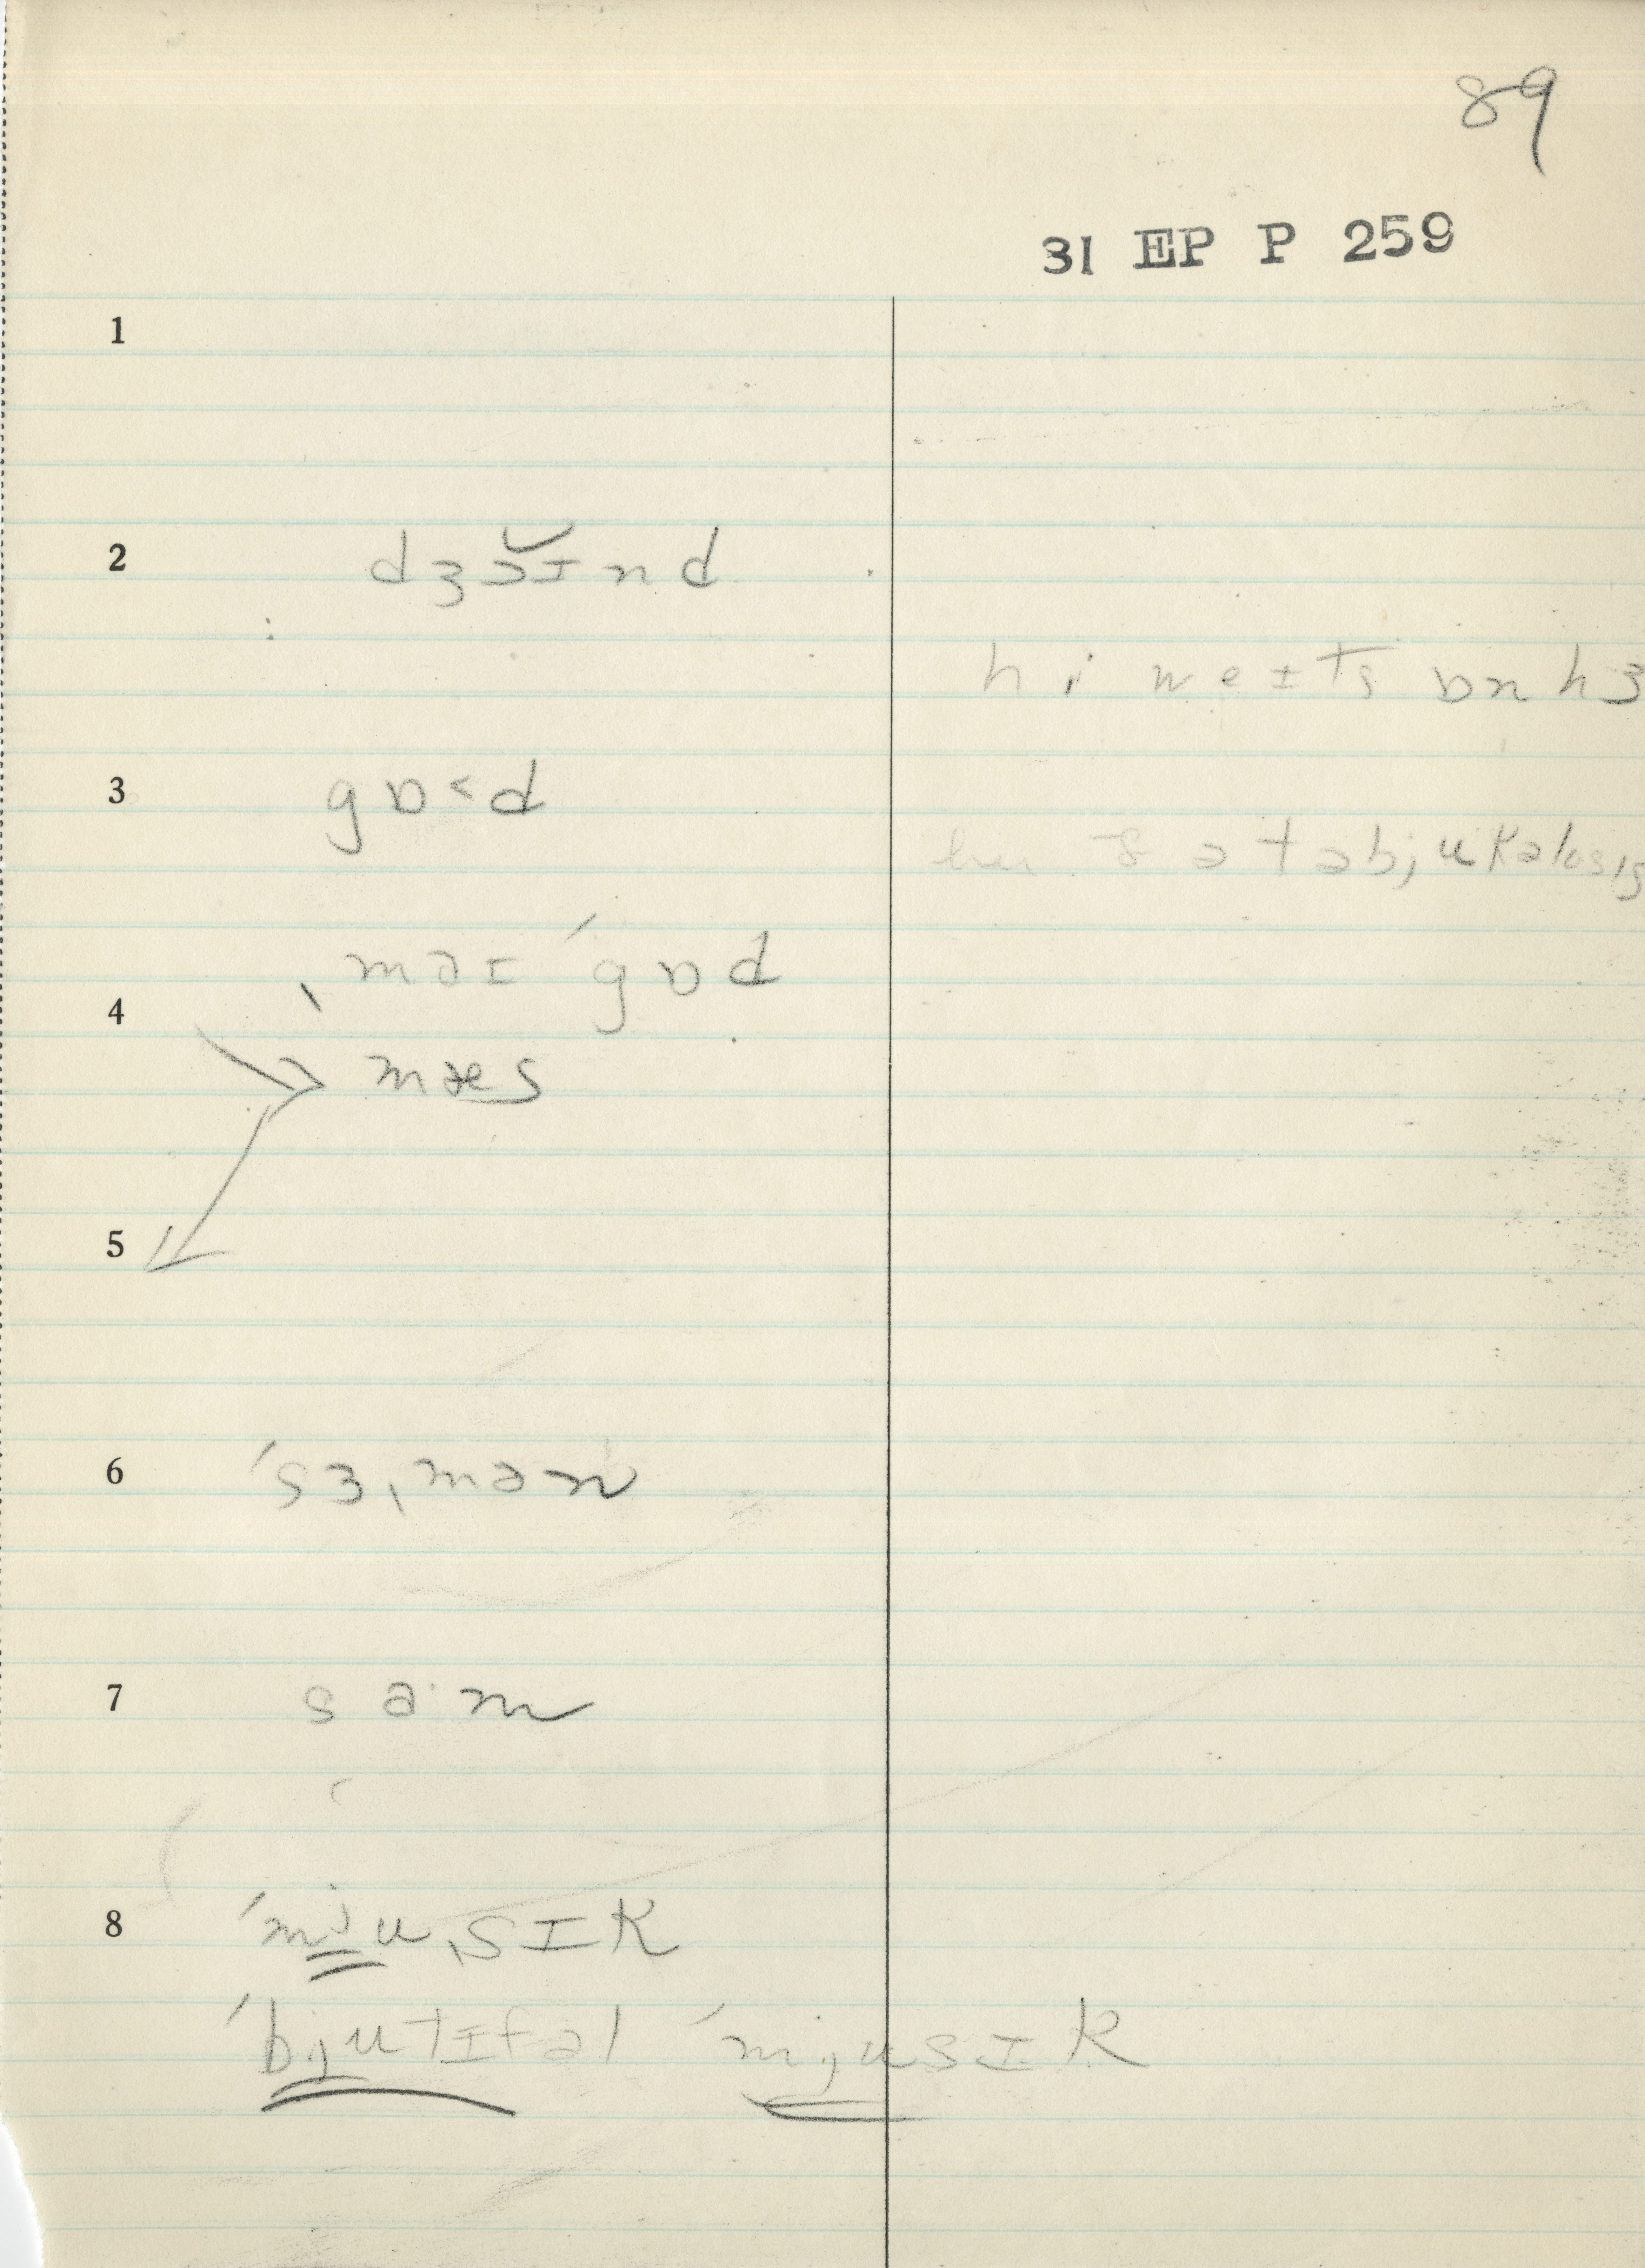 89
31 EP P 259
1
2 dʒɔ̆ɪnd
hi weɪts ɒn hɜ
3 gɒ˂d
s ə təbjukəlosɪs
ˌməɪ ˈgɒd
4
mæs
5
6 ˈsɜˌmən
7 sa·m
8 ˈmjuˌsɪk
ˈbjutɪfəl ˈmjusɪk